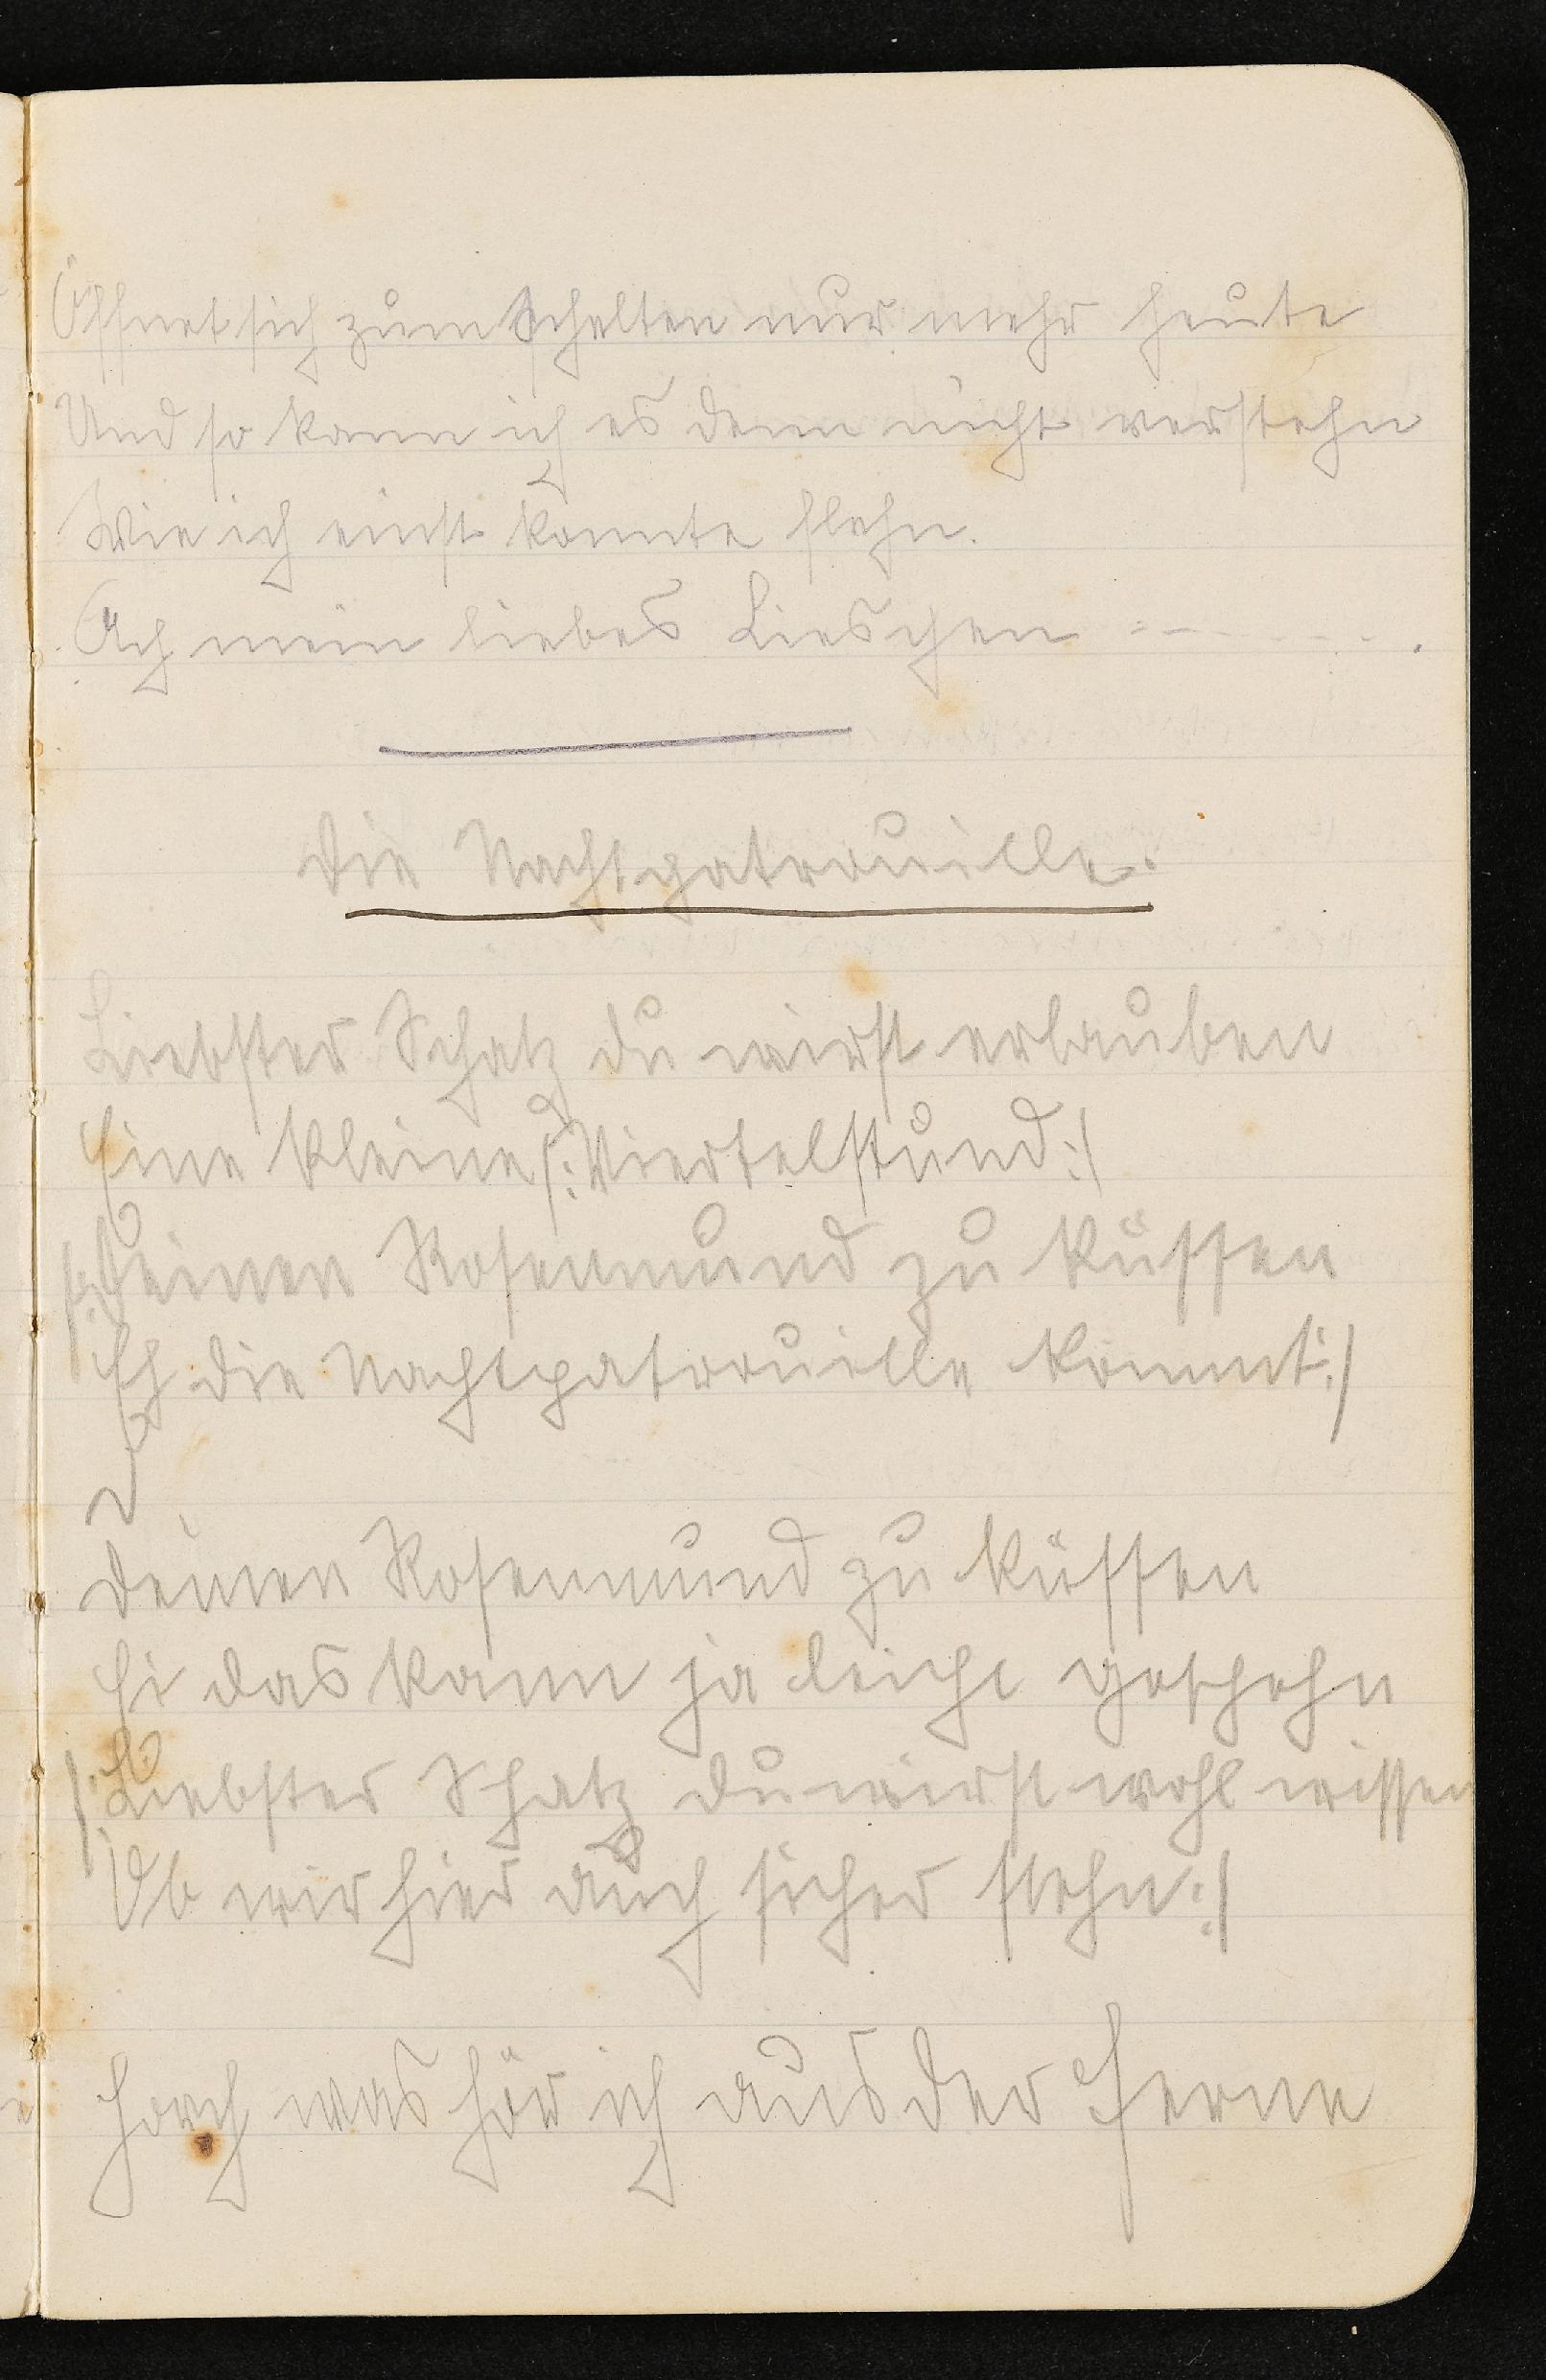 Öffnet sich zum Schelten nur mehr heute
Und so kann ich es denn nicht verstehn
Wie ich einst konnte flehn.
Ach mein liebes Lieschen -------.
Die Nachtpatrouille.
Liebster Schatz du wirst erlauben
Eine kleine /:Viertelstund:/
/:Deinen Rosenmund zu küssen
Eh die Nachtpatrouille kommt:/
Deinen Rosenmund zu küssen
Ei das kann ja leicht geschehn
/:Liebster Schatz du wirst wohl wissen
Ob wir hier auch sicher stehn:/
Horch was hör ich aus der Ferne